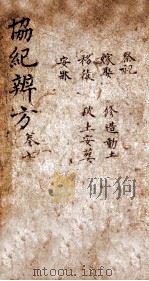 祭祀
嫁娶 修造動土
移徙 破土安葬
安牀
協紀辨方 卷七
www.toutu66.com